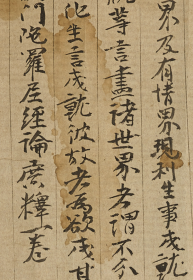 界及有情界現利生事成就
等言盡諸世界者謂不分
生言成就彼故者為欲成
門陀羅尼經論廣釋一卷